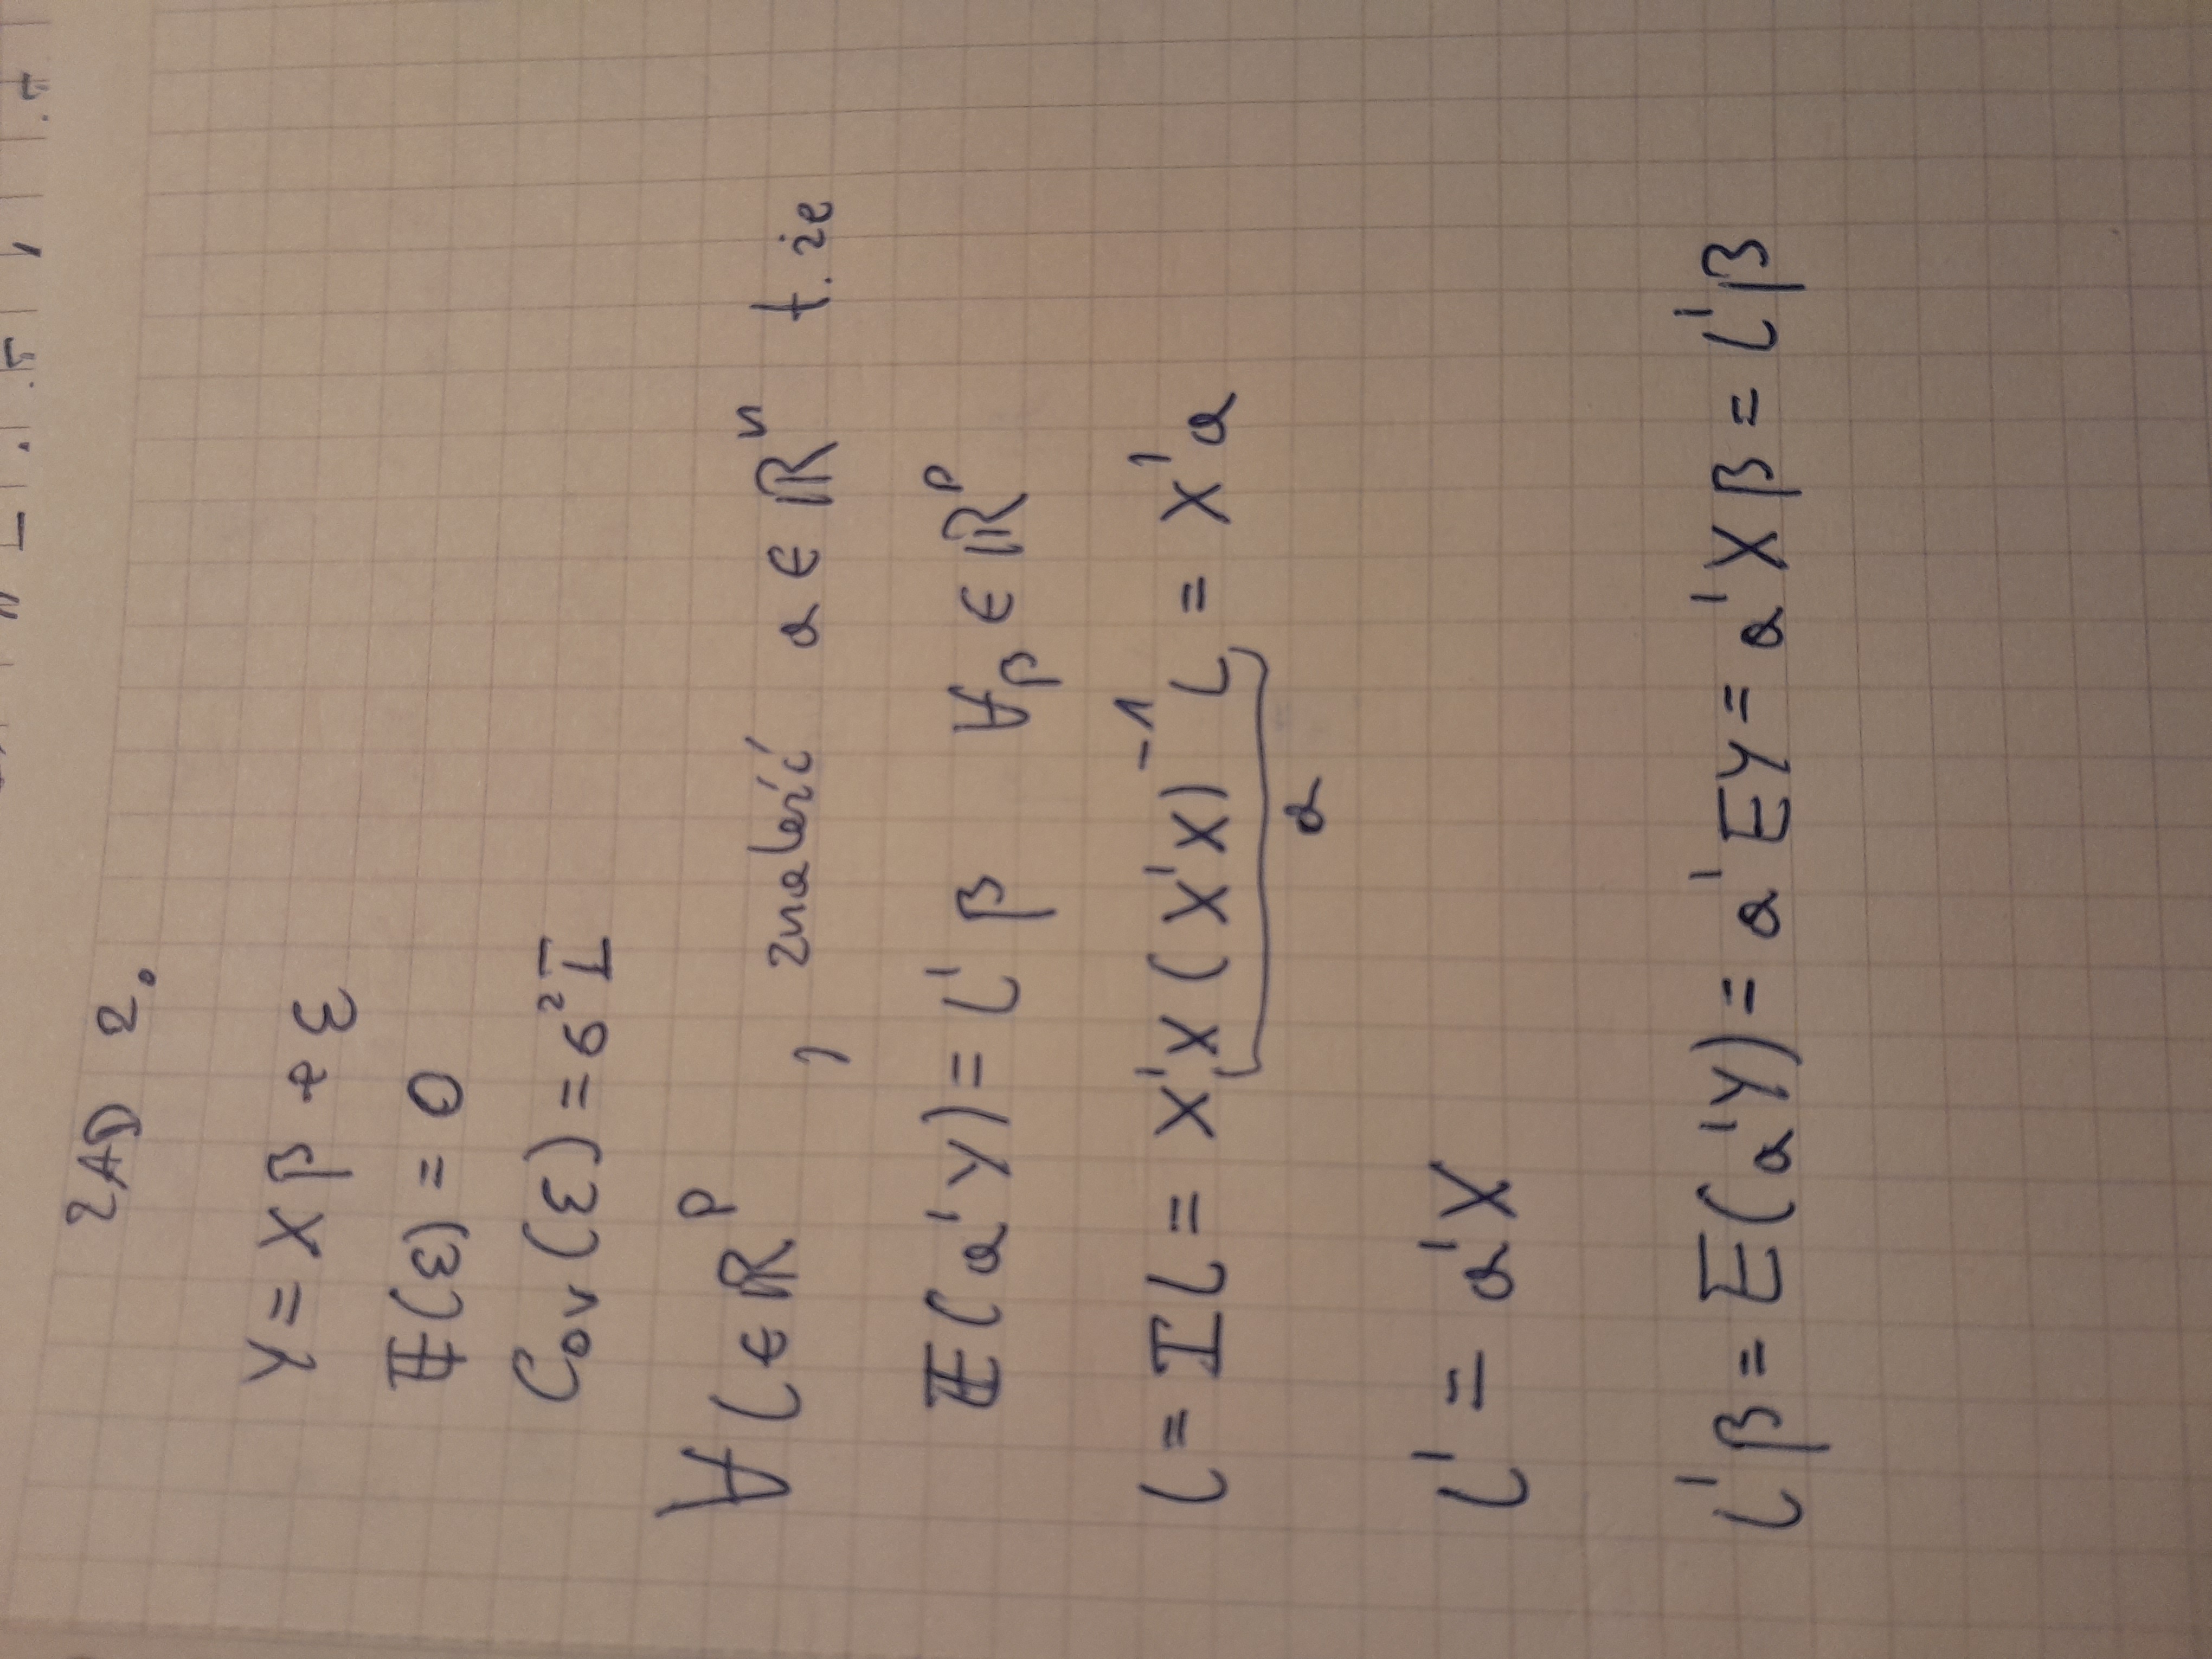 ZAD 2.
Y = Xβ + ε
𝔼(ε) = 0
Cov(ε) = σ²I
∀ l ∈ ℝᵖ , znaleźć a ∈ ℝⁿ t. że
𝔼(a'Y) = l'β ∀β ∈ ℝᵖ
l = Il = X'X(X'X)⁻¹l = X'a
a
l' = a'X
l'β = E(a'Y) = a'EY = a'Xβ = l'β